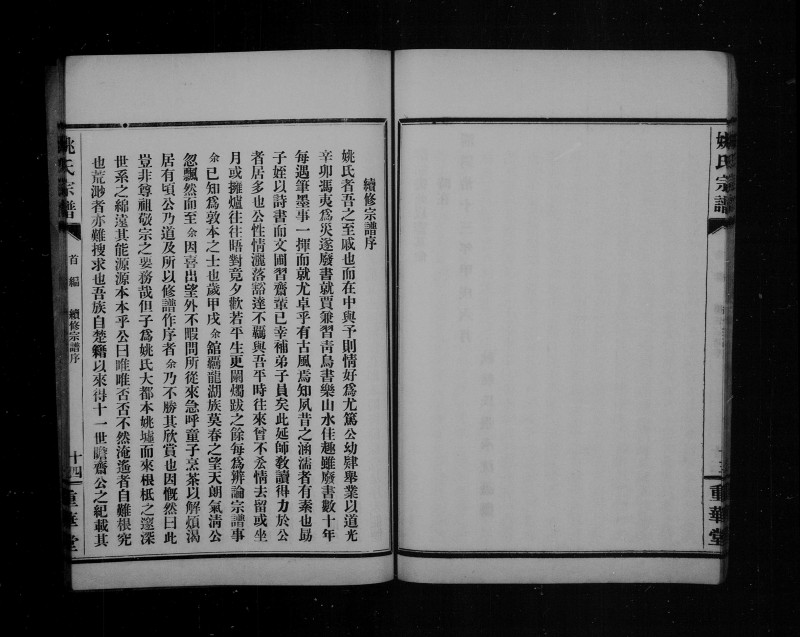 姚氏宗譜
重華堂
續修宗譜序
姚氏者吾之至戚也而在中與予則情好為尤篤公幼肄舉業以道光
辛卯馮夷為災遂廢書就賈兼習青烏書樂山水佳趣雖廢書數十年
每遇筆墨事一揮而就尤卓乎有古風焉知夙昔之涵濡者有素也勗
子姪以詩書而文圃習齋輩已幸補弟子員矣此延師教讀得力於公
者居多也公性情灑落豁達不羈與吾平時往來曾不忩情去留或坐
月或擁爐往往晤對竟夕歡若平生更闌燭跋之餘每為辨論宗譜事
余已知為敦本之士也歲甲戌余舘覊龍湖族莫春之望天朗氣清公
忽飄然而至余因喜出望外不暇問所從來急呼童子烹茶以解煩渴
居有頃公乃道及所以修譜作序者余乃不勝其欣賞也因慨然曰此
豈非尊祖敬宗之要務哉但子為姚氏大都本姚墟而來根柢之邃深
世系之綿遠其能源源本本乎公曰唯唯否否不然淹遙者自難根究
也荒渺者亦難搜求也吾族自楚籍以來得十一世瞻齋公之紀載其
姚氏宗譜
首編
續修宗譜序
十四
重華堂